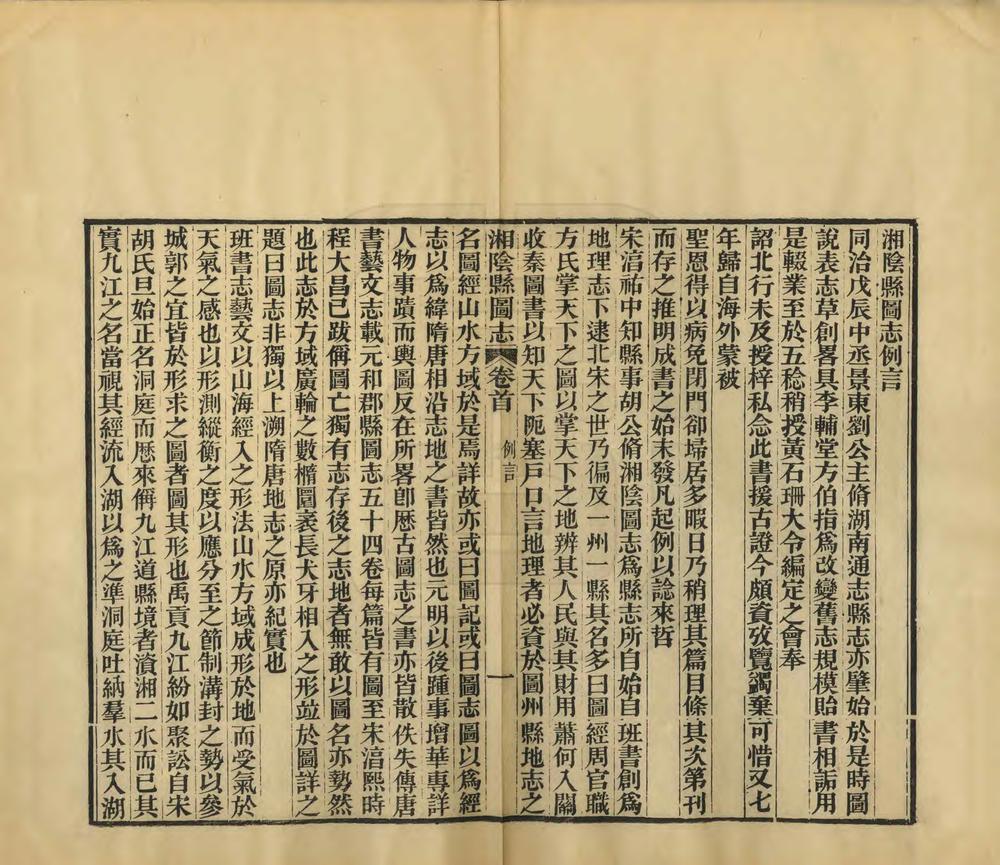 湘陰縣圖志例言
同治戊辰中丞景東劉公主脩湖南通志縣志亦肇始於是時圖
說表志草創畧具李輔堂方伯指爲改變舊志規模貽書相詬用
是輟業至於五稔稍授黃石珊大令編定之會奉
詔北行未及授梓私念此書援古證今頗資攷覽蠲棄可惜又七
年歸自海外蒙被
聖恩得以病免閉門卻埽居多暇日乃稍理其篇目條其次第刊
而存之推明成書之始末發凡起例以諗來哲
宋湻祐中知縣事胡公脩湘陰圖志爲縣志所自始自班書創爲
地理志下逮北宋之世乃徧及一州一縣其名多曰圖經周官職
方氏掌天下之圖以掌天下之地辨其人民與其財用蕭何入關
收秦圖書以知天下阨塞戸口言地理者必資於圖州縣地志之
湘陰縣圖志 卷首 例言 一
名圖經山水方域於是焉詳故亦或曰圖記或曰圖志圖以爲經
志以爲緯隋唐相沿志地之書皆然也元明以後踵事增華專詳
人物事蹟而輿圖反在所畧卽厯古圖志之書亦皆散佚失傳唐
書藝文志載元和郡縣圖志五十四卷每篇皆有圖至宋湻熙時
程大昌已跋偁圖亡獨有志存後之志地者無敢以圖名亦勢然
也此志於方域廣輪之數楕圜袤長犬牙相入之形竝於圖詳之
題曰圖志非獨以上溯隋唐地志之原亦紀實也
班書志藝文以山海經入之形法山水方域成形於地而受氣於
天氣之感也以形測縱衡之度以應分至之節制溝封之勢以參
城郭之宜皆於形求之圖者圖其形也禹貢九江紛如聚訟自宋
胡氏旦始正名洞庭而厯來偁九江道縣境者濱湘二水而已其
實九江之名當視其經流入湖以爲之準洞庭吐納羣水其入湖